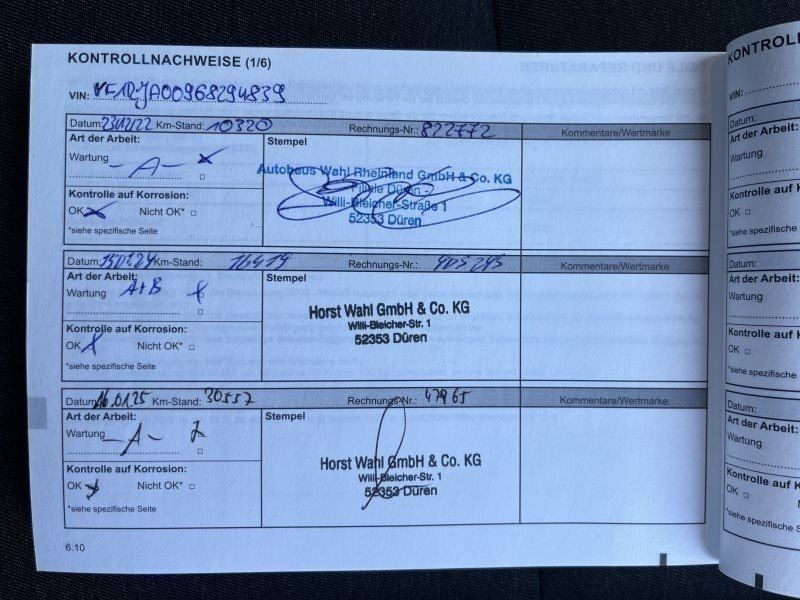 KONTROLLNACHWEISE (1/6)
VIN: VF1RJA00968294839
Datum: 23.12.22 Km-Stand: 10320 Rechnungs-Nr.: 822772 Kommentare/Wertmarke
Art der Arbeit: Stempel
Wartung -A- x
Autohaus Wahl Rheinland GmbH & Co. KG
Filiale Düren -
Willi-Bleicher-Straße 1
52353 Düren
Kontrolle auf Korrosion:
OK x Nicht OK* □
*siehe spezifische Seite
Datum: Km-Stand: 16419 Rechnungs-Nr.: 905295 Kommentare/Wertmarke
Art der Arbeit: Stempel
Wartung A+B x
Horst Wahl GmbH & Co. KG
Willi-Bleicher-Str. 1
52353 Düren
Kontrolle auf Korrosion:
OK x Nicht OK* □
*siehe spezifische Seite
Datum: 16.01.25 Km-Stand: 30557 Rechnungs-Nr.: 47965 Kommentare/Wertmarke
Art der Arbeit: Stempel
Wartung -A-
Horst Wahl GmbH & Co. KG
Willi-Bleicher-Str. 1
52353 Düren
Kontrolle auf Korrosion:
OK x Nicht OK* □
*siehe spezifische Seite
6.10
KONTROLL
VIN:
Datum:
Art der Arbeit:
Wartung
Kontrolle auf K
OK □
*siehe spezifisch
Datum:
Art der Arbeit:
Wartung
Kontrolle auf K
OK □
*siehe spezifisch
Datum:
Art der Arbeit:
Wartung
Kontrolle auf K
OK □ N
*siehe spezifische